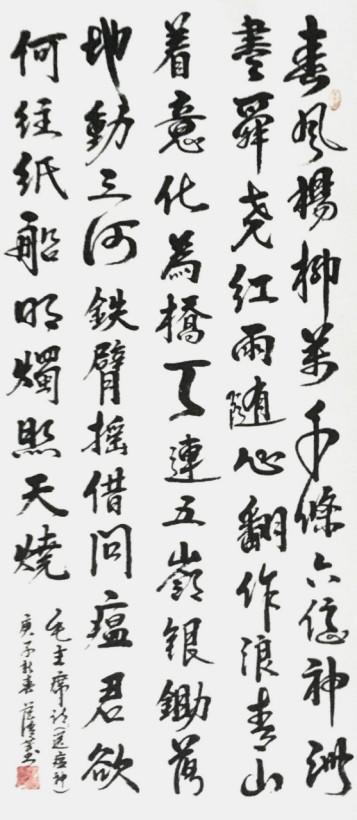 春风楊柳萬千條六億神洲
盡舜尧紅雨随心翻作浪青山
着意化為橋天連五嶺銀鋤落
地動三河鉄臂摇借问瘟君欲
何往纸船明燭照天燒
毛主席詩(送瘟神)
庚子新春